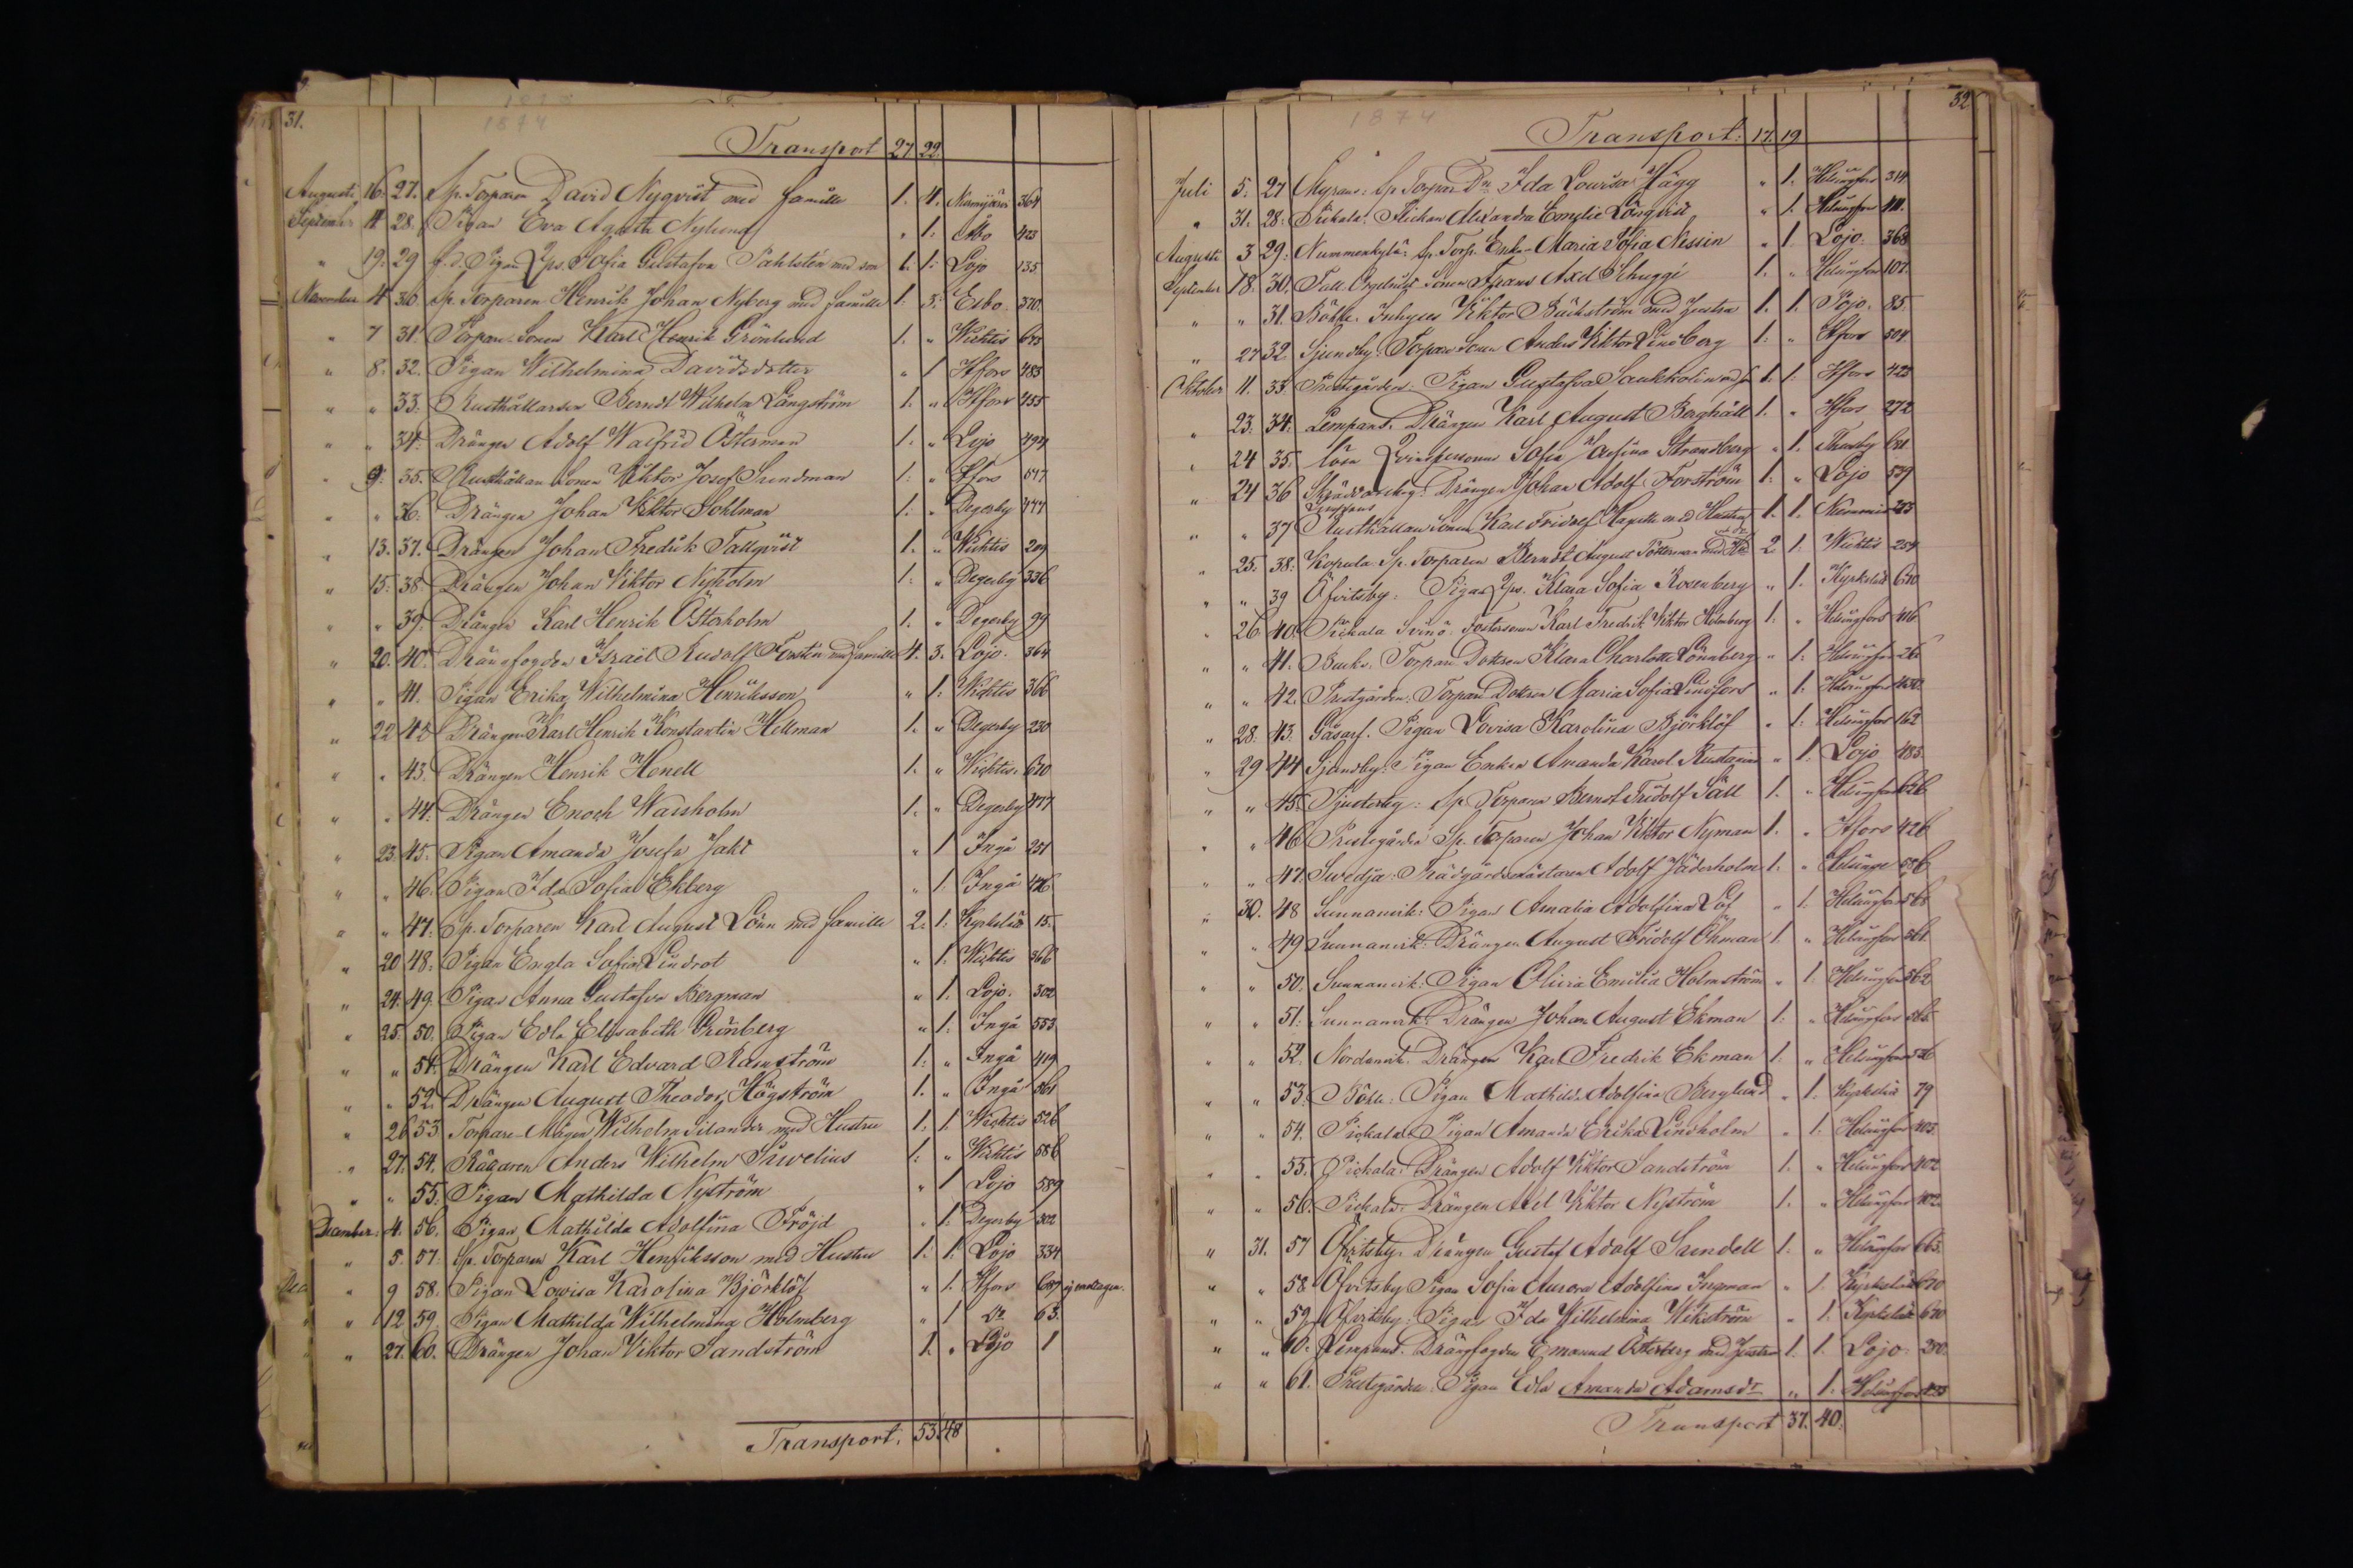 31.
1874
Transport 27 22
Augusti 16. 27. Sp. Torparen David Nyqvist med familie 1. 4. 364
September 11 28. Pigan Eva Agatha Nylund " 1. Åbo 423
" 19. 29 f.d. Pigan Sofia Gustafva Sahlstén med son 1. 1. Lojo 135
November 4 30 Sp. Torparen Henrik Johan Nyberg med familie 1. 5. Esbo 370.
" 7 31. Torpare Sonen Karl Henrik Grönlund 1. " Wichtis 643
" 8. 32. Pigan Wilhelmina Davidsdotter " 1 Hfors 483
" " 33. Rusthållarson Berndt Wilhelm Långström 1. " Hfors 455
" " 34. Drängen Adolf Walfrid Österman 1. " Lojo 494
" 9. 35. Rusthållare Sonen Viktor Josef Sundman 1. " Hfors 647
" " 36. Drängen Johan Viktor Sohlman 1. " Degerby 444
" 13. 37. Drängen Johan Fredrik Tallqvist 1. " Wichtis 209
" 15. 38. Drängen Johan Viktor Nyholm 1. " Degerby 336
" " 39. Drängen Karl Henrik Österholm 1. " Degerby 99
" 20. 40. Drängfogden Israel Rudolf Forstén med familie 4. 3. Lojo. 364
" " 41. Pigan Erika Wilhelmina Henriksson " 1. Wichtis 366
" 22 42 Drängen Karl Henrik Konstantin Hellman 1. " Degerby 230
" " 43. Drängen Henrik Honell 1. " Wichtis. 610
" " 44. Drängen Enoch Waisholm 1. " Degerby 477
" 23. 45. Pigan Amanda Josefa Jakt " 1 Ingå 251
" " 46. Pigan Ida Sofia Ekberg " 1. Ingå 476
" " 47. Sp. Torparen Karl August Lönn med familie 2. 1. Kyrkslät 15.
" 20 48. Pigan Engla Sofia Lindrot " 1. Wichtis 366
" 24. 49. Pigan Anna Gustafva Bergman " 1. Lojo. 302
" 25. 50. Pigan Edla Elisabeth Grönberg " 1. Ingå 553
" " 51. Drängen Karl Edvard Ramström 1. " Ingå 419
" " 52. Drängen August Theodor Högström 1. " Ingå 361
" 26 53 Torpare Mågen Wilhelm Silander med Hustru 1. 1. Wichtis 526
" 27. 54. Anders Wilhelm Siwelius 1. " Wichtis 586
" " 55. Pigan Mathilda Nyström " 1 Lojo 589
December. 4. 56. Pigan Mathilda Adolfina Fröjd " 1. Degerby 302
" 5. 57. Sp. Torparen Karl Henriksson med Hustru 1. 1. Lojo 334
" 9 58. Pigan Lovisa Karolina Björklöf " 1. Hfors 687
" 12 59. Pigan Mathilda Wilhelmina Holmberg " 1 Do 63.
" 27. 60. Drängen Johan Viktor Sandström 1. " Lojo 1
Transport. 53 48
32
1874
Transport. 17. 19
Juli 5. 27 Myrans: Sp Torpar Dr Ida Lovisa Hägg " 1. Helsingfors 314
" 31. 28. Pickala: Flickan Alexandra Emelie Lönqvist " 1. Helsingfors 411.
Augusti 3 29. Nummenkylä: Sp. Torp. Enka Maria Sofia Nissin " 1. Lojo. 368
September 18. 30. Sonen Frans Axel Schuggé 1. " Helsingfors 107.
" " 31. Böhle. Inhyses Viktor Bäckström med Hustru 1. 1. Pojo. 85.
" 27 32 Sjundby: Torpare Sonen Anders Viktor Lindberg 1. " Hfors 504
Oktober 11. 33. Prestegården: Pigan Gustafva Saukkolin 1. 1. Hfors 423
" 23. 34. Lempans. Drängen Karl August Berghäll 1. " Hfors 272
" 24 35. lösa Qvinspersonen Sofia Josefina Strandberg " 1. Thusby 681
" 24 36 Drängen Johan Adolf Forström 1. " Lojo 539
" " 37 Rusthållare Sonen Karl Fridolf med Hustru 1. 1. Nummis 23
" 25. 38. Kopula. Sp. Torparen Berndt August Fötterman med 2 1. Wichtis 254
" " 39 Öfvitsby: Pigan Klara Sofia Rosenberg " 1. Kyrkslät 670
" 26. 40. Pickala Svinö: Fostersonen Karl Fredrik Viktor Holmberg 1. " Helsingfors 416
" " 41. Backs. Torpare Dottren Klara Charlotta Lönnberg " 1. Helsingfors 26.
" " 42. Prestgården: Torpare Dottren Maria Sofia Lindfors " 1. Helsingfors 430.
" 28. 43. Gåsarf. Pigan Lovisa Karolina Björklöf " 1. Helsingfors 162
" 29 44 Sjundby: Pigan Enkan Amanda Karol. " 1. Lojo 483.
" " 45. Sp Torparen Berndt Fridolf Säll 1. " Helsingfors 626
" " 46 Prestegården Sp. Torparen Johan Viktor Nyman 1. " Hfors 426
" " 47. Svedja: Trädgårdsmästaren Adolf Söderholm 1. " Helsinge 596
" 30. 48 Sunnanvik: Pigan Amalia Adolfina Löf " 1. Helsingfors 568
" " 49 Sunnanvik: Drängen August Fridolf Öhman 1. " Helsingfors 561
" " 50. Sunnanvik: Pigan Olivia Emilia Holmström " 1. Helsingfors 562
" " 51. Sunnanvik: Drängen Johan August Ekman 1. " Helsingfors 565
" " 52. Nordanvik: Drängen Karl Fredrik Ekman 1. " Helsingfors 526
" " 53. Böhle: Pigan Mathilda Adolfina Berglund " 1. Kyrkslät 79
" " 54. Pickala. Pigan Amanda Erika Lindholm " 1. Helsingfors 403.
" " 55. Pickala: Drängen Adolf Viktor Sandström 1. " Helsingfors 402
" " 56. Pickala. Drängen Axel Viktor Nyström 1. " Helsingfors 402
" 31. 57 Öfvitsby. Drängen Gustaf Adolf Sundell 1. " Helsingfors 663.
" " 58 Öfvitsby Pigan Sofia Aurora Adolfina Ingman " 1. Kyrkslät 670
" " 59. Öfvitsby: Pigan Ida Wilhelmina Wikström " 1. Kyrkslät 670
" " 60. Lempans. Drängfogden Emanuel Österberg med Hustru 1. 1. Lojo. 270.
" " 61. Prestegården. Pigan Edla Amanda Adamsdr " 1. Helsingfors 423
Transport 37. 40.